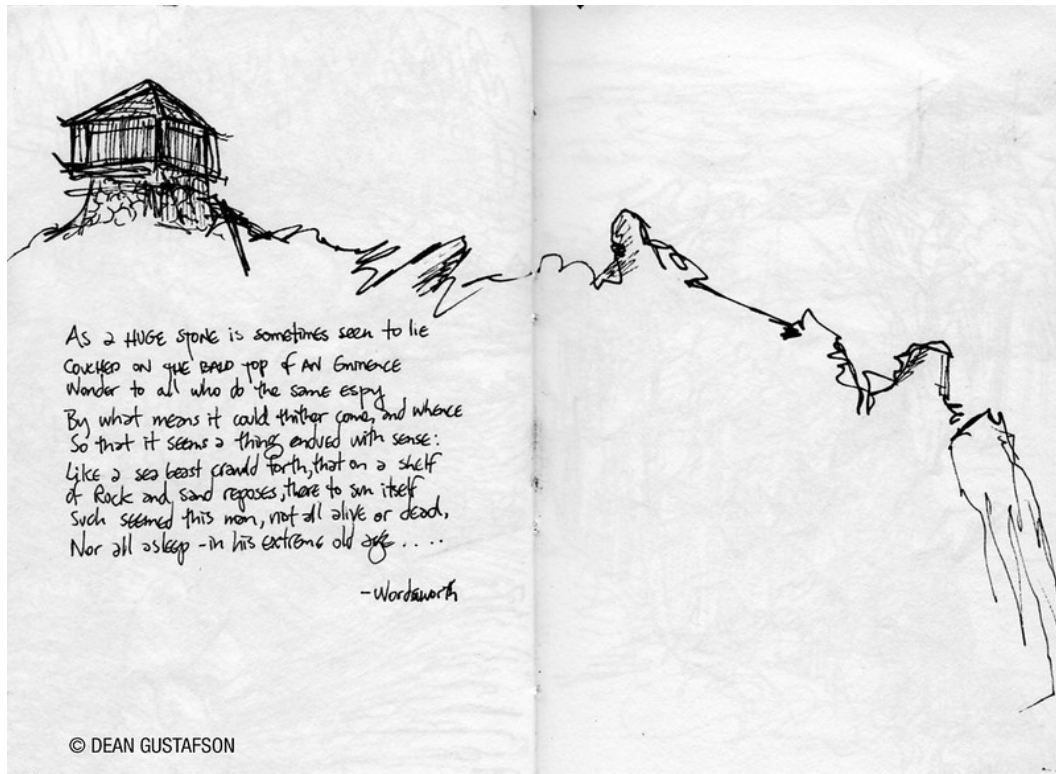 As a HUGE STONE is sometimes seen to lie
COUCHED ON THE BALD TOP of AN EMINENCE
Wonder to all who do the same espy
By what means it could thither come, and whence
So that it seems a thing endued with sense:
Like a sea beast crawld forth, that on a shelf
of Rock and sand reposes, there to sun itself
Such seemed this man, not all alive or dead,
Nor all asleep - in his extreme old age ....
- Wordsworth
© DEAN GUSTAFSON